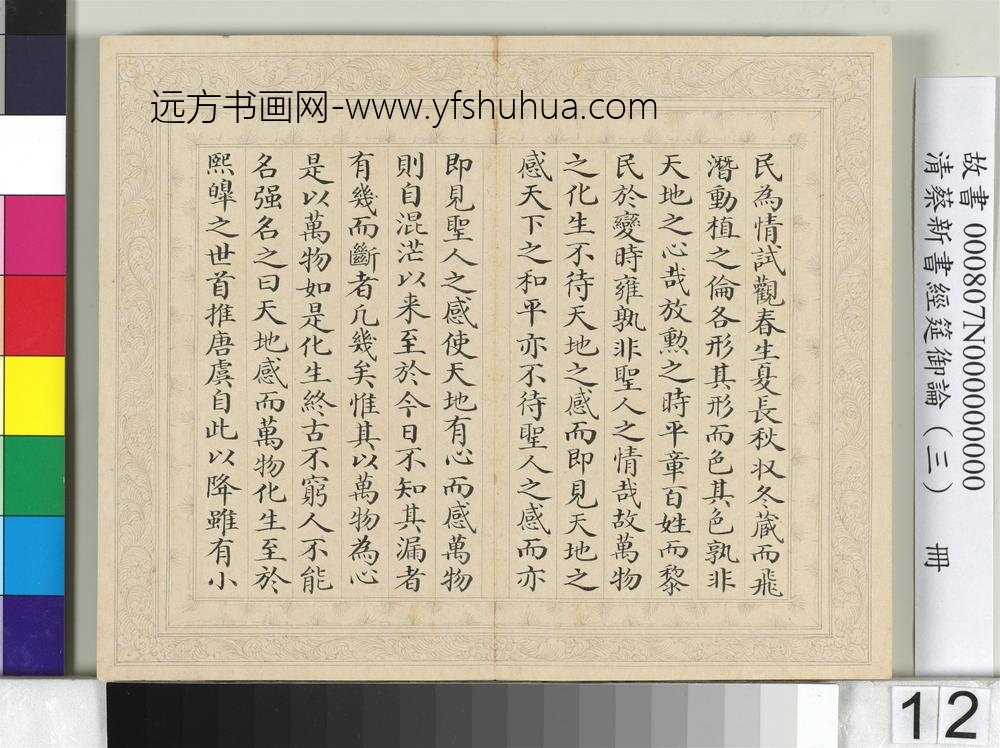 远方书画网-www.yfshuhua.com
民為情試觀春生夏長秋収冬蔵而飛
潛動植之倫各形其形而色其色孰非
天地之心哉放勲之時平章百姓而黎
民於變時雍孰非聖人之情哉故萬物
之化生不待天地之感而即見天地之
感天下之和平亦不待聖人之感而亦
即見聖人之感使天地有心而感萬物
則自混茫以来至於今日不知其漏者
有幾而斷者几幾矣惟其以萬物為心
是以萬物如是化生終古不窮人不能
名强名之曰天地感而萬物化生至於
熙皞之世首推唐虞自此以降雖有小
故書 000807N000000000
清蔡新書經筵御論（三） 冊
12